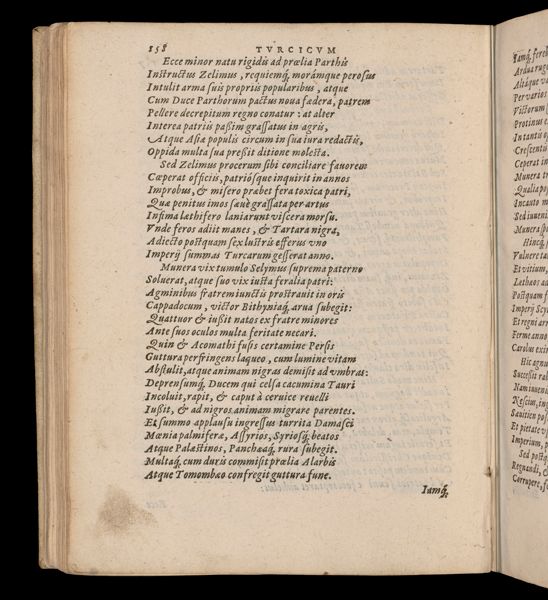 158 TVRCICVM
Ecce minor natu rigidis ad prœlia Parthis
Instructus Zelimus, requiemq́, morámque perosus
Intulit arma suis propriis popularibus, atque
Cum Duce Parthorum pactus noua fœdera, patrem
Pellere decrepitum regno conatur: at alter
Interea patriis paßim graßatus in agris,
Atque Asiæ populis circum in sua iura redactis,
Oppida multa sua preßit ditione molesta.
Sed Zelimus procerum sibi conciliare fauorem
Cœperat officiis, patriósque inquirit in annos
Improbus, & misero præbet fera toxica patri,
Quæ penitus imos sæuè graßata per artus
Infima lethifero laniarunt viscera morsu.
Vnde feros adiit manes, & Tartara nigra,
Adiecto postquam sex lustris efferus vno
Imperij summas Turcarum gesserat anno.
Munera vix tumulo Selymus suprema paterno
Soluerat, atque suo vix iusta feralia patri:
Agminibus fratrem iunctis prostrauit in oris
Cappadocum, victor Bithyniaq́, arua subegit:
Quattuor & iußit natos ex fratre minores
Ante suos oculos multa feritate necari.
Quin & Acomathi fusis certamine Persis
Guttura perfringens laqueo, cum lumine vitam
Abstulit, atque animam nigras demisit ad vmbras:
Deprensumq́, Ducem qui celsa cacumina Tauri
Incoluit, rapit, & caput à ceruice reuelli
Iußit, & ad nigros animam migrare parentes.
Et summo applausu ingressus turrita Damasci
Mœnia palmiferæ, Assyrios, Syriosq́, beatos
Atque Palæstinos, Panchæaq́, rura subegit.
Multaq́, cum duris commisit prœlia Alarbis
Atque Tomombæo confregit guttura fune.
Iamq́,
Iamq́, fere
Ardua
Atque
Per varios
Victorum
Protinus
In tanti
Crescenti
Ceperat
Munera
Qualia
Incauto
Sed iuueni
Munera
Hincq́,
Vulnere
Et vitium,
Lethæos ad
Postquam
Imperij
Et regni
Ferme anno
Carolus
Hic agnus
Successit
Nam iuueni
Nescius,
Sauitien
Et pietate
Imperium,
Sed postq
Regnandi,
Corrupere,